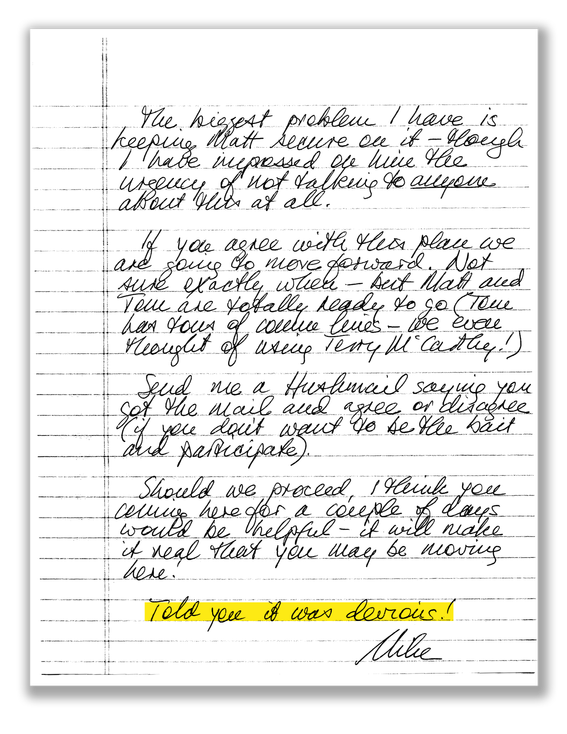 The biggest problem I have is
keeping Matt secure on it – though
I have impressed on him the
urgency of not talking to anyone
about this at all.
If you agree with this plan we
are going to move forward. Not
sure exactly when – but Matt and
Tom are totally ready to go (Tom
has tons of comm lines – we even
thought of using Terry McCarthy!)
Send me a Hushmail saying you
got the mail and agree or disagree
(if you don't want to be the bait
and participate).
Should we proceed, I think you
coming here for a couple of days
would be helpful – it will make
it real that you may be moving
here.
Told you it was devious!
Mike